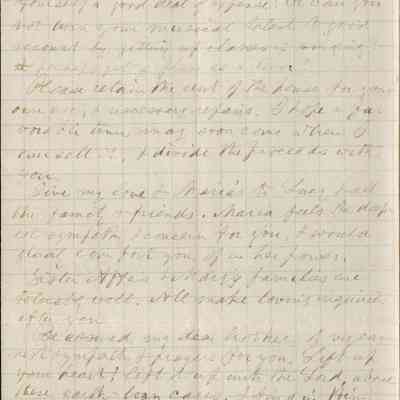 yourself a good deal of expense. Or can you
not turn your musical talent to good
account by getting up classes in
place as a
Please retain the rent of the house for your
own use, & necessary repairs. I hope a fav-
orable time may soon come when I
can sell it, & divide the proceeds with
you.
Give my love & Maria's to Lucy and
the family & friends. Maria feels the deep-
est sympathy & concern for you, & would
do for you if in her power.
Sister families are
tolerably well. All make loving inquiries
after you
Be assured my dear brother of my ear-
nest sympathy & prayers for you. Lift up
your heart! Lift it up unto the Lord, above
these earth-born cares, & find in Him